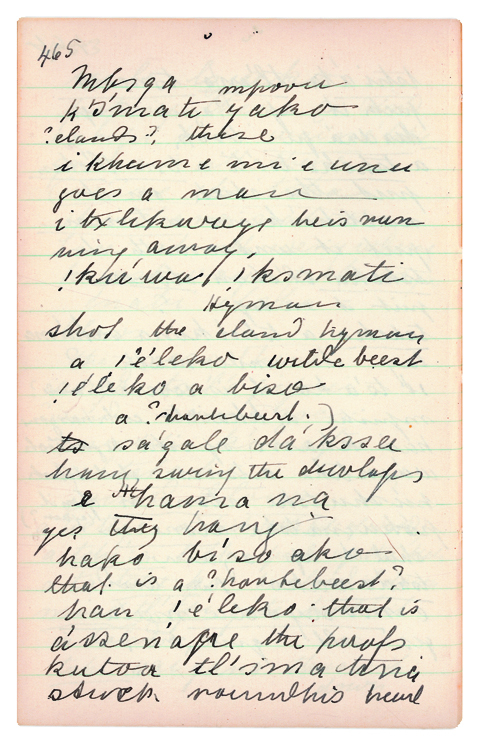 465
mpovu
k'smati yako
?elands?, these
i khame mi e unu
goes a man
i txlikwaye he is run
ning away,
!kuwa/ !ksmati
Hyman
shot the eland hyman
a !'éleko wildebeest
!'éleko a biso
a ?hartebeest.)
ságale dá'kssee
hang swing the dewlaps
e hama na
yes they hang
hako biso ako
that is a ?hartebeest?
han !'éleko that is
the
kutoa tl'sima
struck round his head